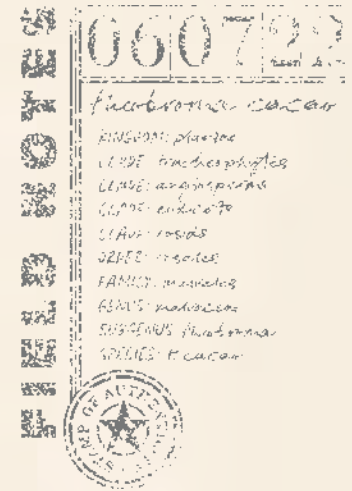 FIELD NOTES
060722
Theobroma cacao
KINGDOM: plantae
CLADE: tracheophytes
CLADE: angiosperms
CLADE: eudicots
CLADE: rosids
ORDER:
FAMILY: malvales
GENUS: malvaceae
SUBGENUS: theobroma
SPECIES: T. cacao
STAMP OF AUTHENTICITY